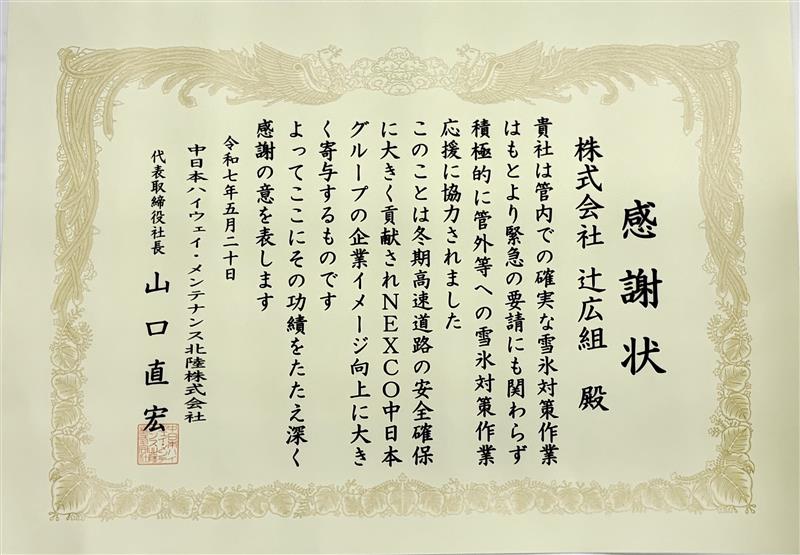 感謝状
株式会社 辻広組 殿
貴社は管内での確実な雪氷対策作業
はもとより緊急の要請にも関わらず
積極的に管外等への雪氷対策作業
応援に協力されました
このことは冬期高速道路の安全確保
に大きく貢献されNEXCO中日本
グループの企業イメージ向上に大き
く寄与するものです
よってここにその功績をたたえ深く
感謝の意を表します
令和七年五月二十日
中日本ハイウェイ・メンテナンス北陸株式会社
代表取締役社長 山口直宏